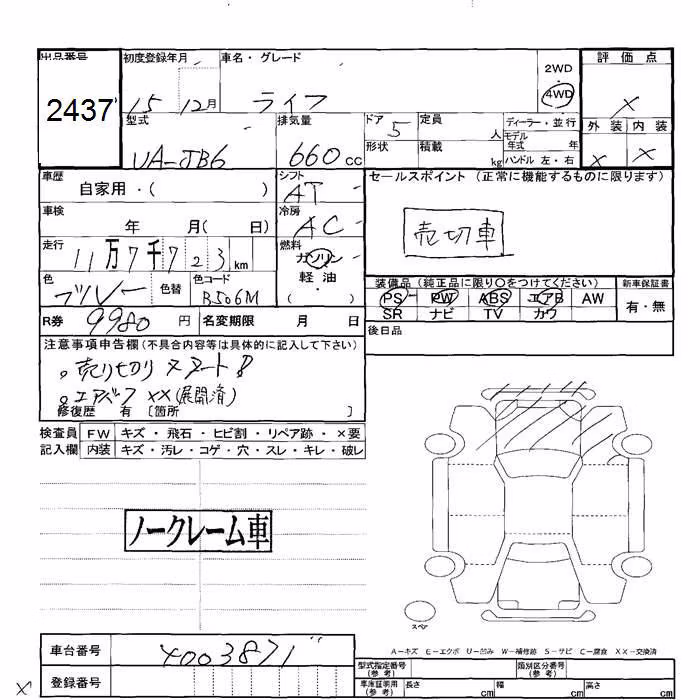 出品番号 初度登録年月 車名・グレード 2WD 評価点
2437 15 12月 ライフ 4WD X
型式 排気量 ドア 定員 ディーラー・並行 外装 内装
UA-JB6 660 cc 5 人 モデル年式 年 X X
形状 積載 kg ハンドル 左・右
車歴 シフト セールスポイント (正常に機能するものに限ります)
自家用・( ) AT
車検 冷房 売切車
年 月( 日) AC
走行 燃料
11万7千723 km ガソリン 装備品 (純正品に限り○をつけてください) 新車保証書
色 色替 色コード 軽・油 PS PW ABS エアB AW 有・無
ブルー B506M ( ) SR ナビ TV カワ
R券 9980 円 名変期限 月 日 後日品
注意事項申告欄 (不具合内容等は具体的に記入して下さい)
。売り切りスタート!
。エアバッグ XX (展開済)
修復歴 有 〔箇所 〕
検査員 FW キズ・飛石・ヒビ割・リペア跡・×要
記入欄 内装 キズ・汚レ・コゲ・穴・スレ・キレ・破レ
ノークレーム車
スペア
車台番号 4003871
A-キズ E-エクボ U-凹み W-補修跡 S-サビ C-腐食 XX-交換済
登録番号 型式指定番号 (参考) 類別区分番号 (参考)
X 車庫証明用 (参考) 長さ cm 幅 cm 高さ cm